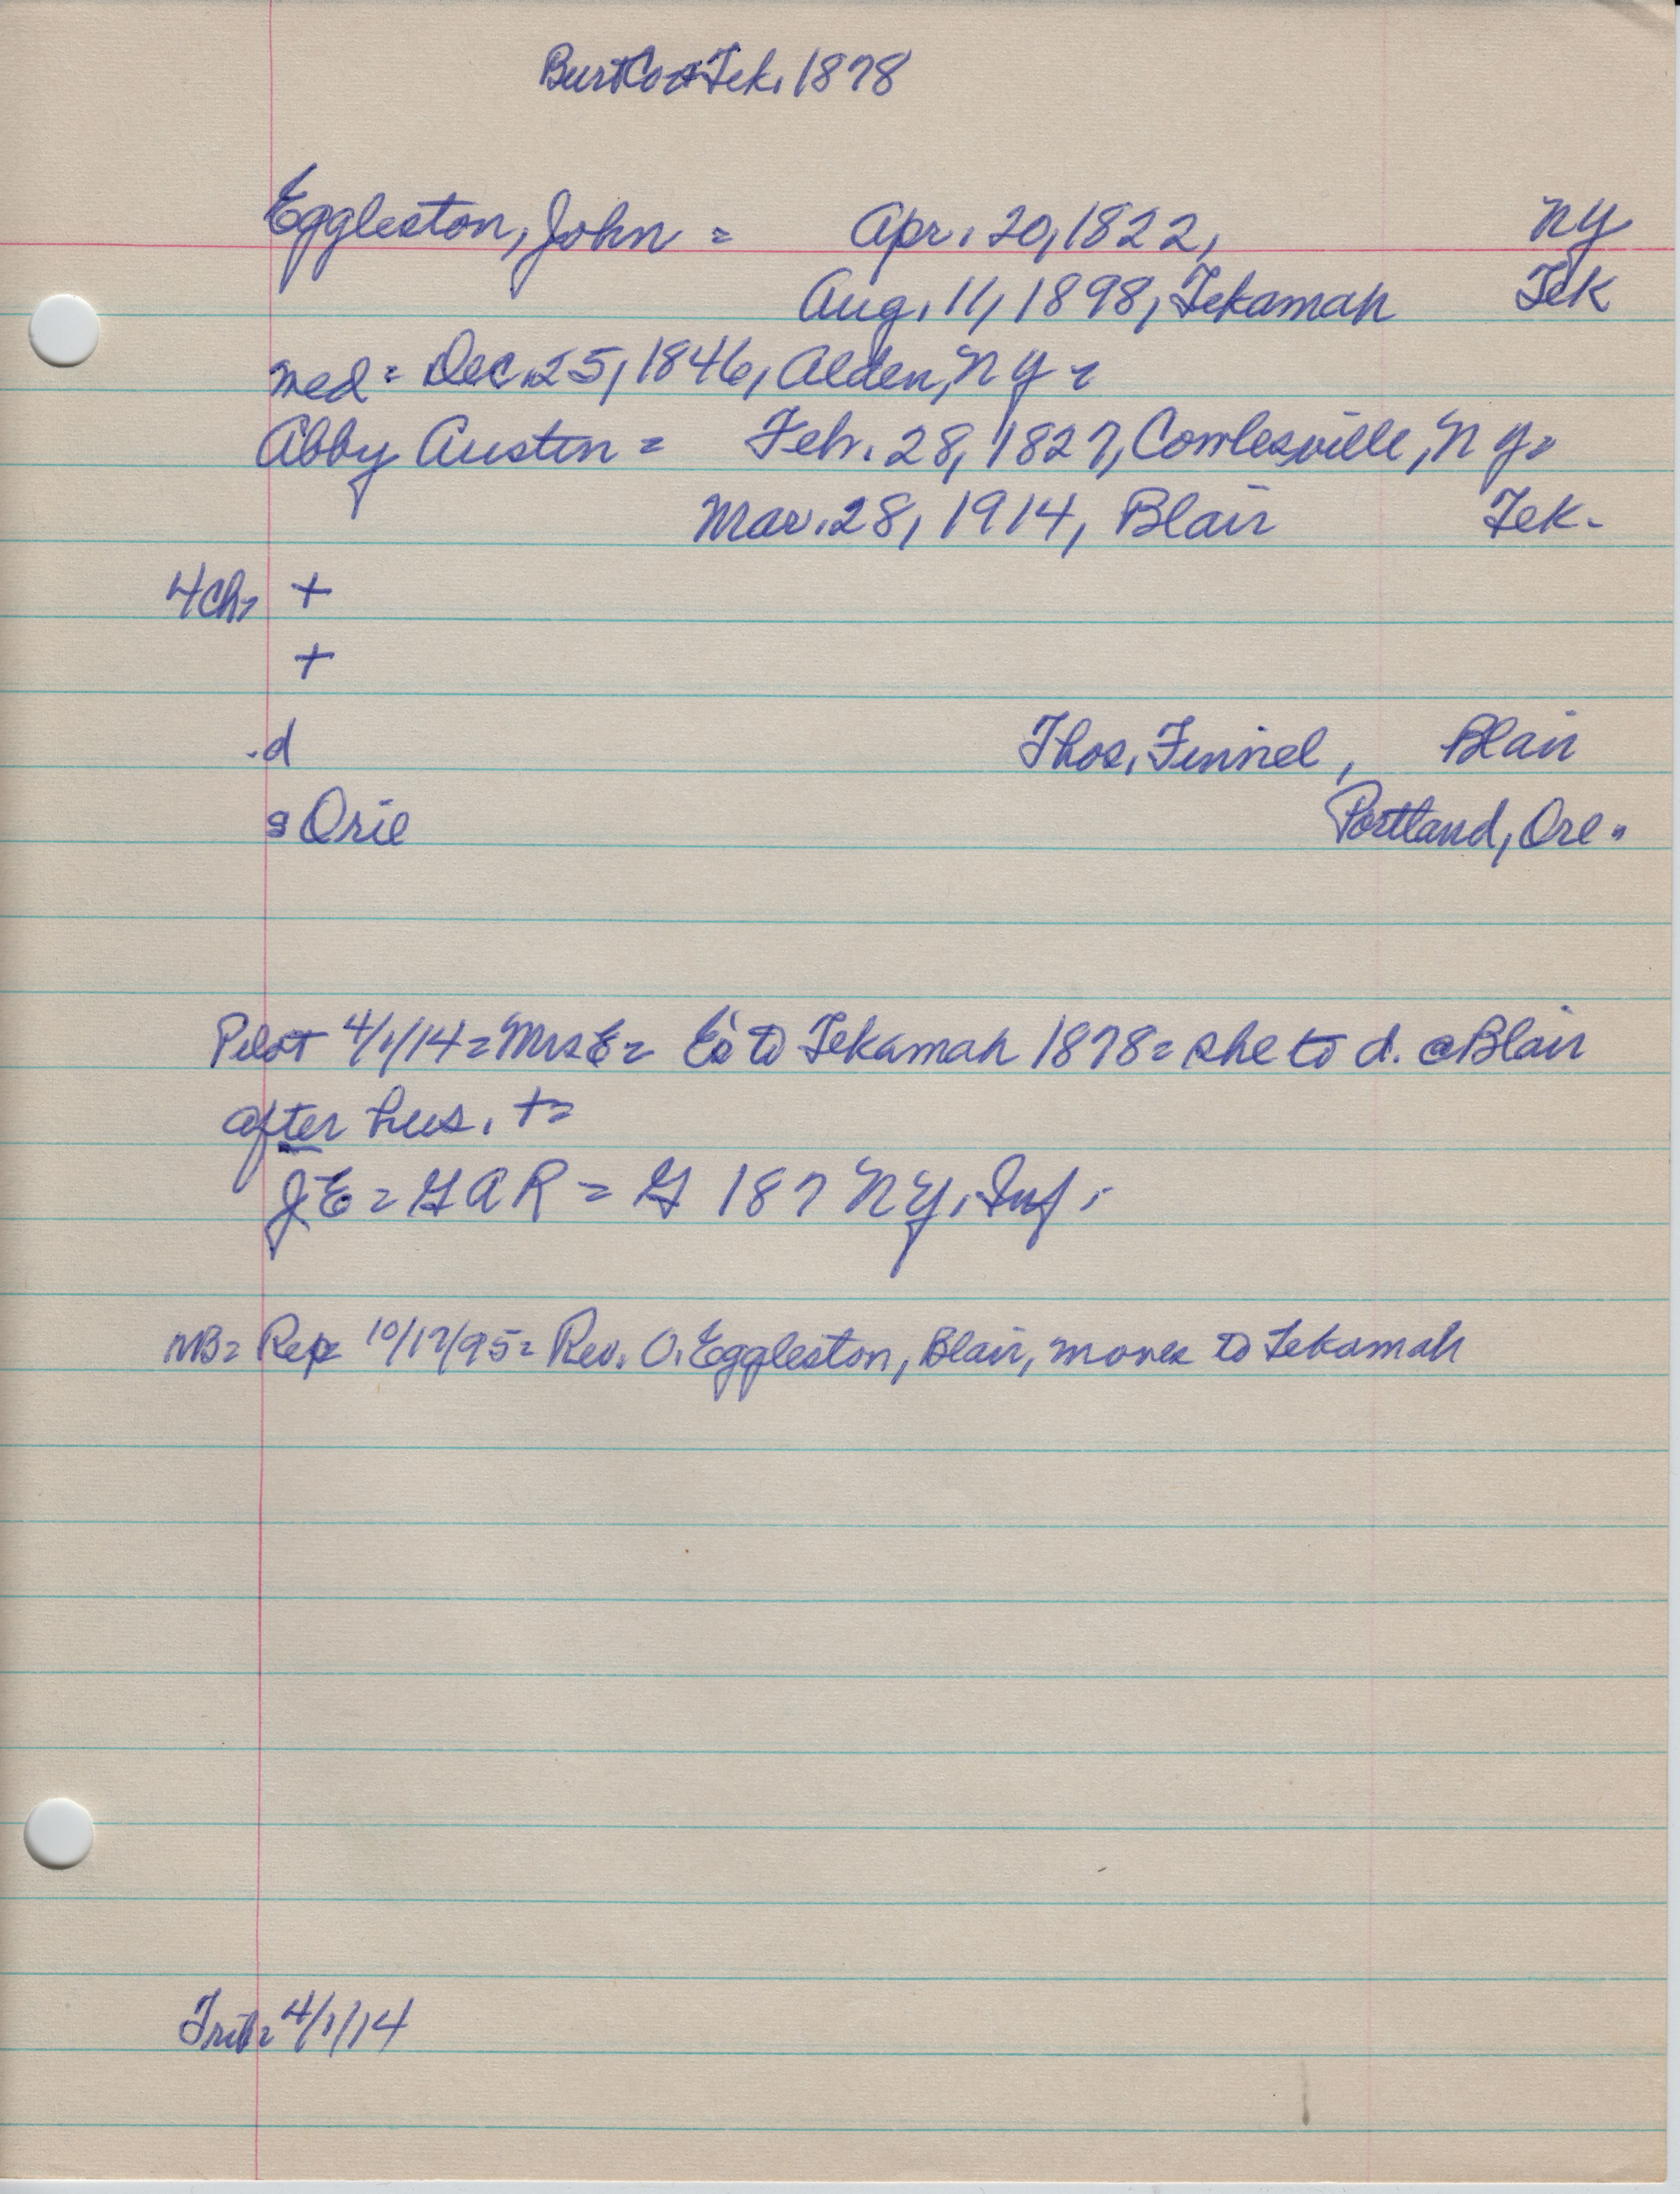 Burt Co + Tek. 1878
Eggleston, John = Apr. 20, 1822, NY
Aug. 11, 1898, Tekamah Tek
med = Dec. 25, 1846, Alden, NY =
Abby Austin = Feb. 28, 1827, Cowlesville, NY =
Mar. 28, 1914, Blair Tek.
4 ch = +
+
d Thos. Finnel, Blair
s Orie Portland, Ore.
Pilot 4/1/14 = Mrs E = Es to Tekamah 1878 = she to d. @ Blair
after hus. + =
JE = GAR = G 187 NY. Inf.
NB = Rep 10/17/95 = Rev. O. Eggleston, Blair, moves to Tekamah
Trib = 4/1/14